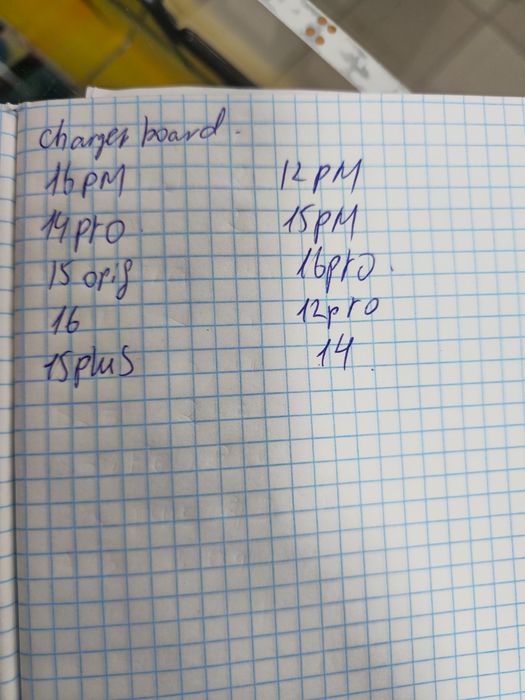 charger board.
16pM
14pro.
15 orig
16
15plus
12pM
15pM
16pro.
12pro
14